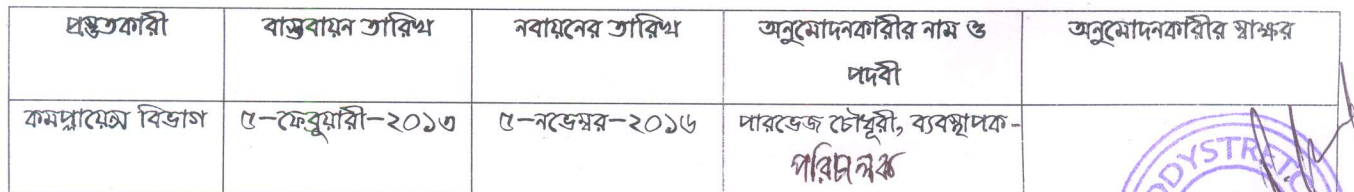 প্রস্তুতকারী	বাস্তবায়ন তারিখ	নবায়নের তারিখ	অনুমোদনকারীর নাম ও পদবী	অনুমোদনকারীর স্বাক্ষর
কমপ্লায়েন্স বিভাগ	৫-ফেব্রুয়ারী-২০১৩	৫-নভেম্বর-২০১৬	পারভেজ চৌধুরী, ব্যবস্থাপক-
পরিচালক